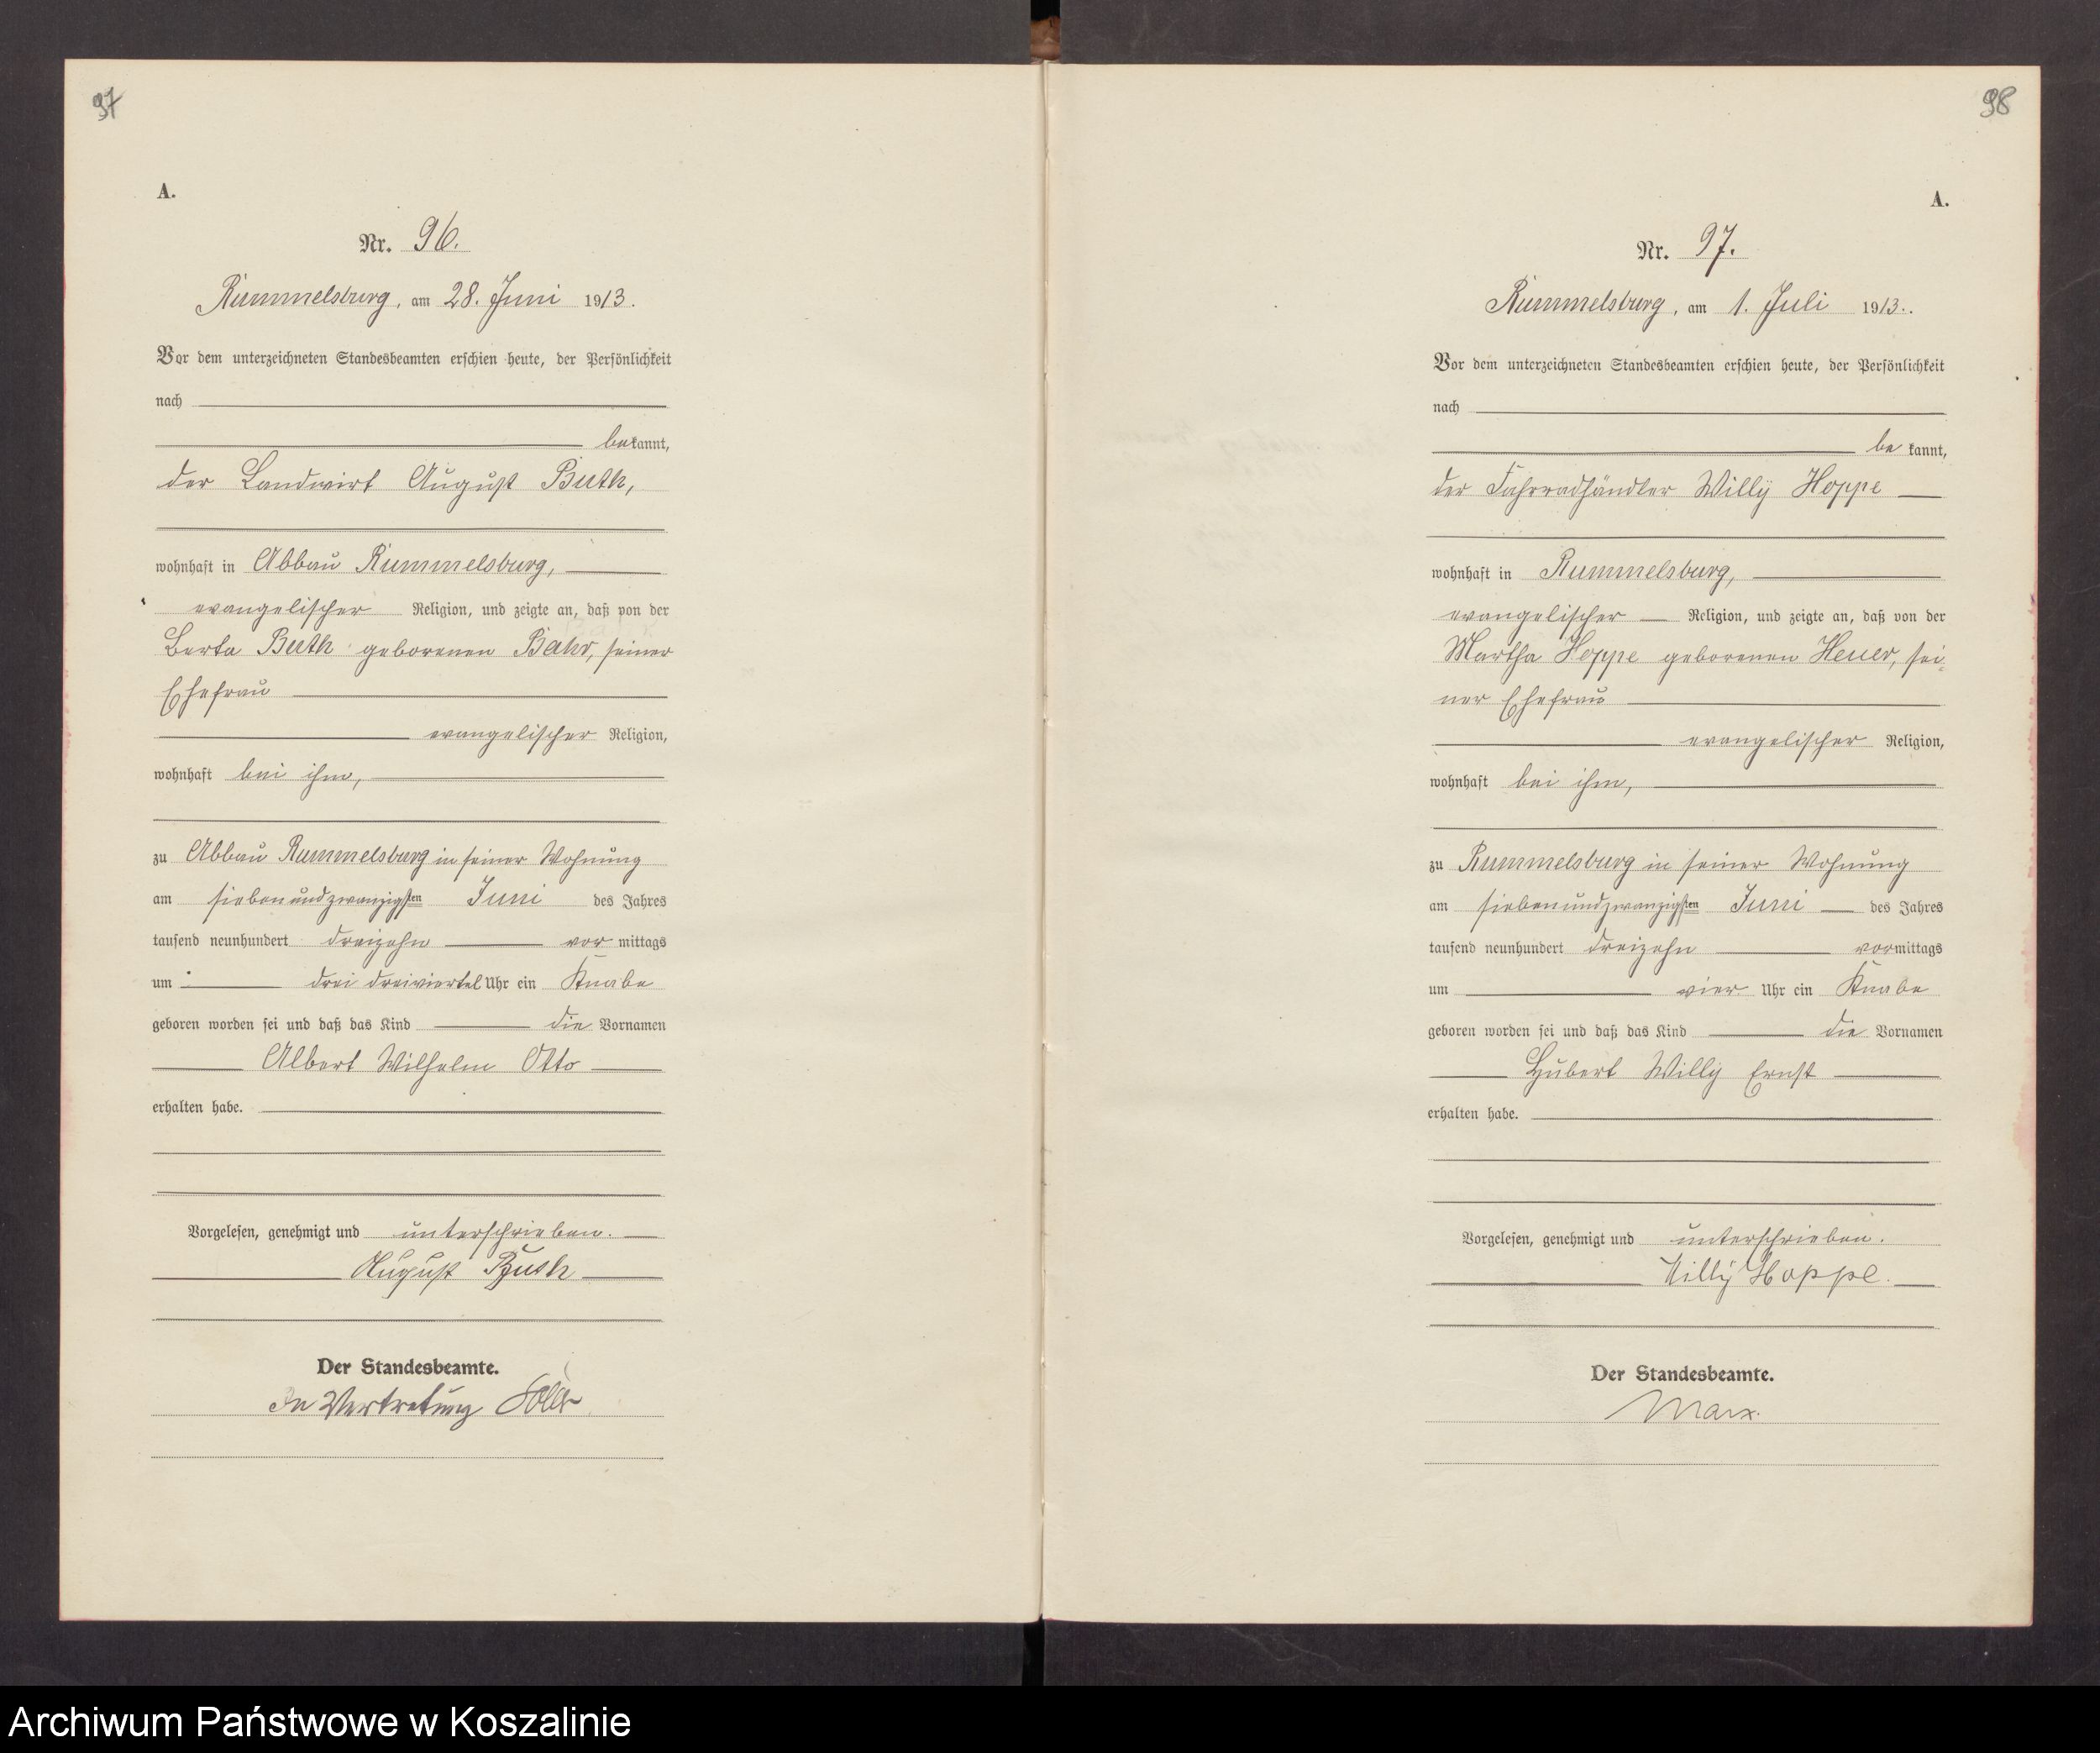 97
A.
Nr. 96.
Rummelsburg, am 28. Juni 1913.
Vor dem unterzeichneten Standesbeamten erschien heute, der Persönlichkeit
nach
bekannt,
der Landwirt August Buth,
wohnhaft in Abbau Rummelsburg,
evangelischer Religion, und zeigte an, daß von der
Berta Buth geborenen Bahr, seiner
Ehefrau
evangelischer Religion,
wohnhaft bei ihm,
zu Abbau Rummelsburg in seiner Wohnung
am siebenundzwanzigsten Juni des Jahres
tausend neunhundert dreizehn vormittags
um drei dreiviertel Uhr ein Knabe
geboren worden sei und daß das Kind die Vornamen
Albert Wilhelm Otto
erhalten habe.
Vorgelesen, genehmigt und unterschrieben.
August Buth
Der Standesbeamte.
In Vertretung
98
A.
Nr. 97.
Rummelsburg, am 1. Juli 1913.
Vor dem unterzeichneten Standesbeamten erschien heute, der Persönlichkeit
nach
bekannt,
der Fahrradhändler Willy Hoppe
wohnhaft in Rummelsburg,
evangelischer Religion, und zeigte an, daß von der
Martha Hoppe geborenen Heuer, sei-
ner Ehefrau
evangelischer Religion,
wohnhaft bei ihm,
zu Rummelsburg in seiner Wohnung
am siebenundzwanzigsten Juni des Jahres
tausend neunhundert dreizehn vormittags
um vier Uhr ein Knabe
geboren worden sei und daß das Kind die Vornamen
Hubert Willy Ernst
erhalten habe.
Vorgelesen, genehmigt und unterschrieben.
Willy Hoppe.
Der Standesbeamte.
Marx.
Archiwum Państwowe w Koszalinie